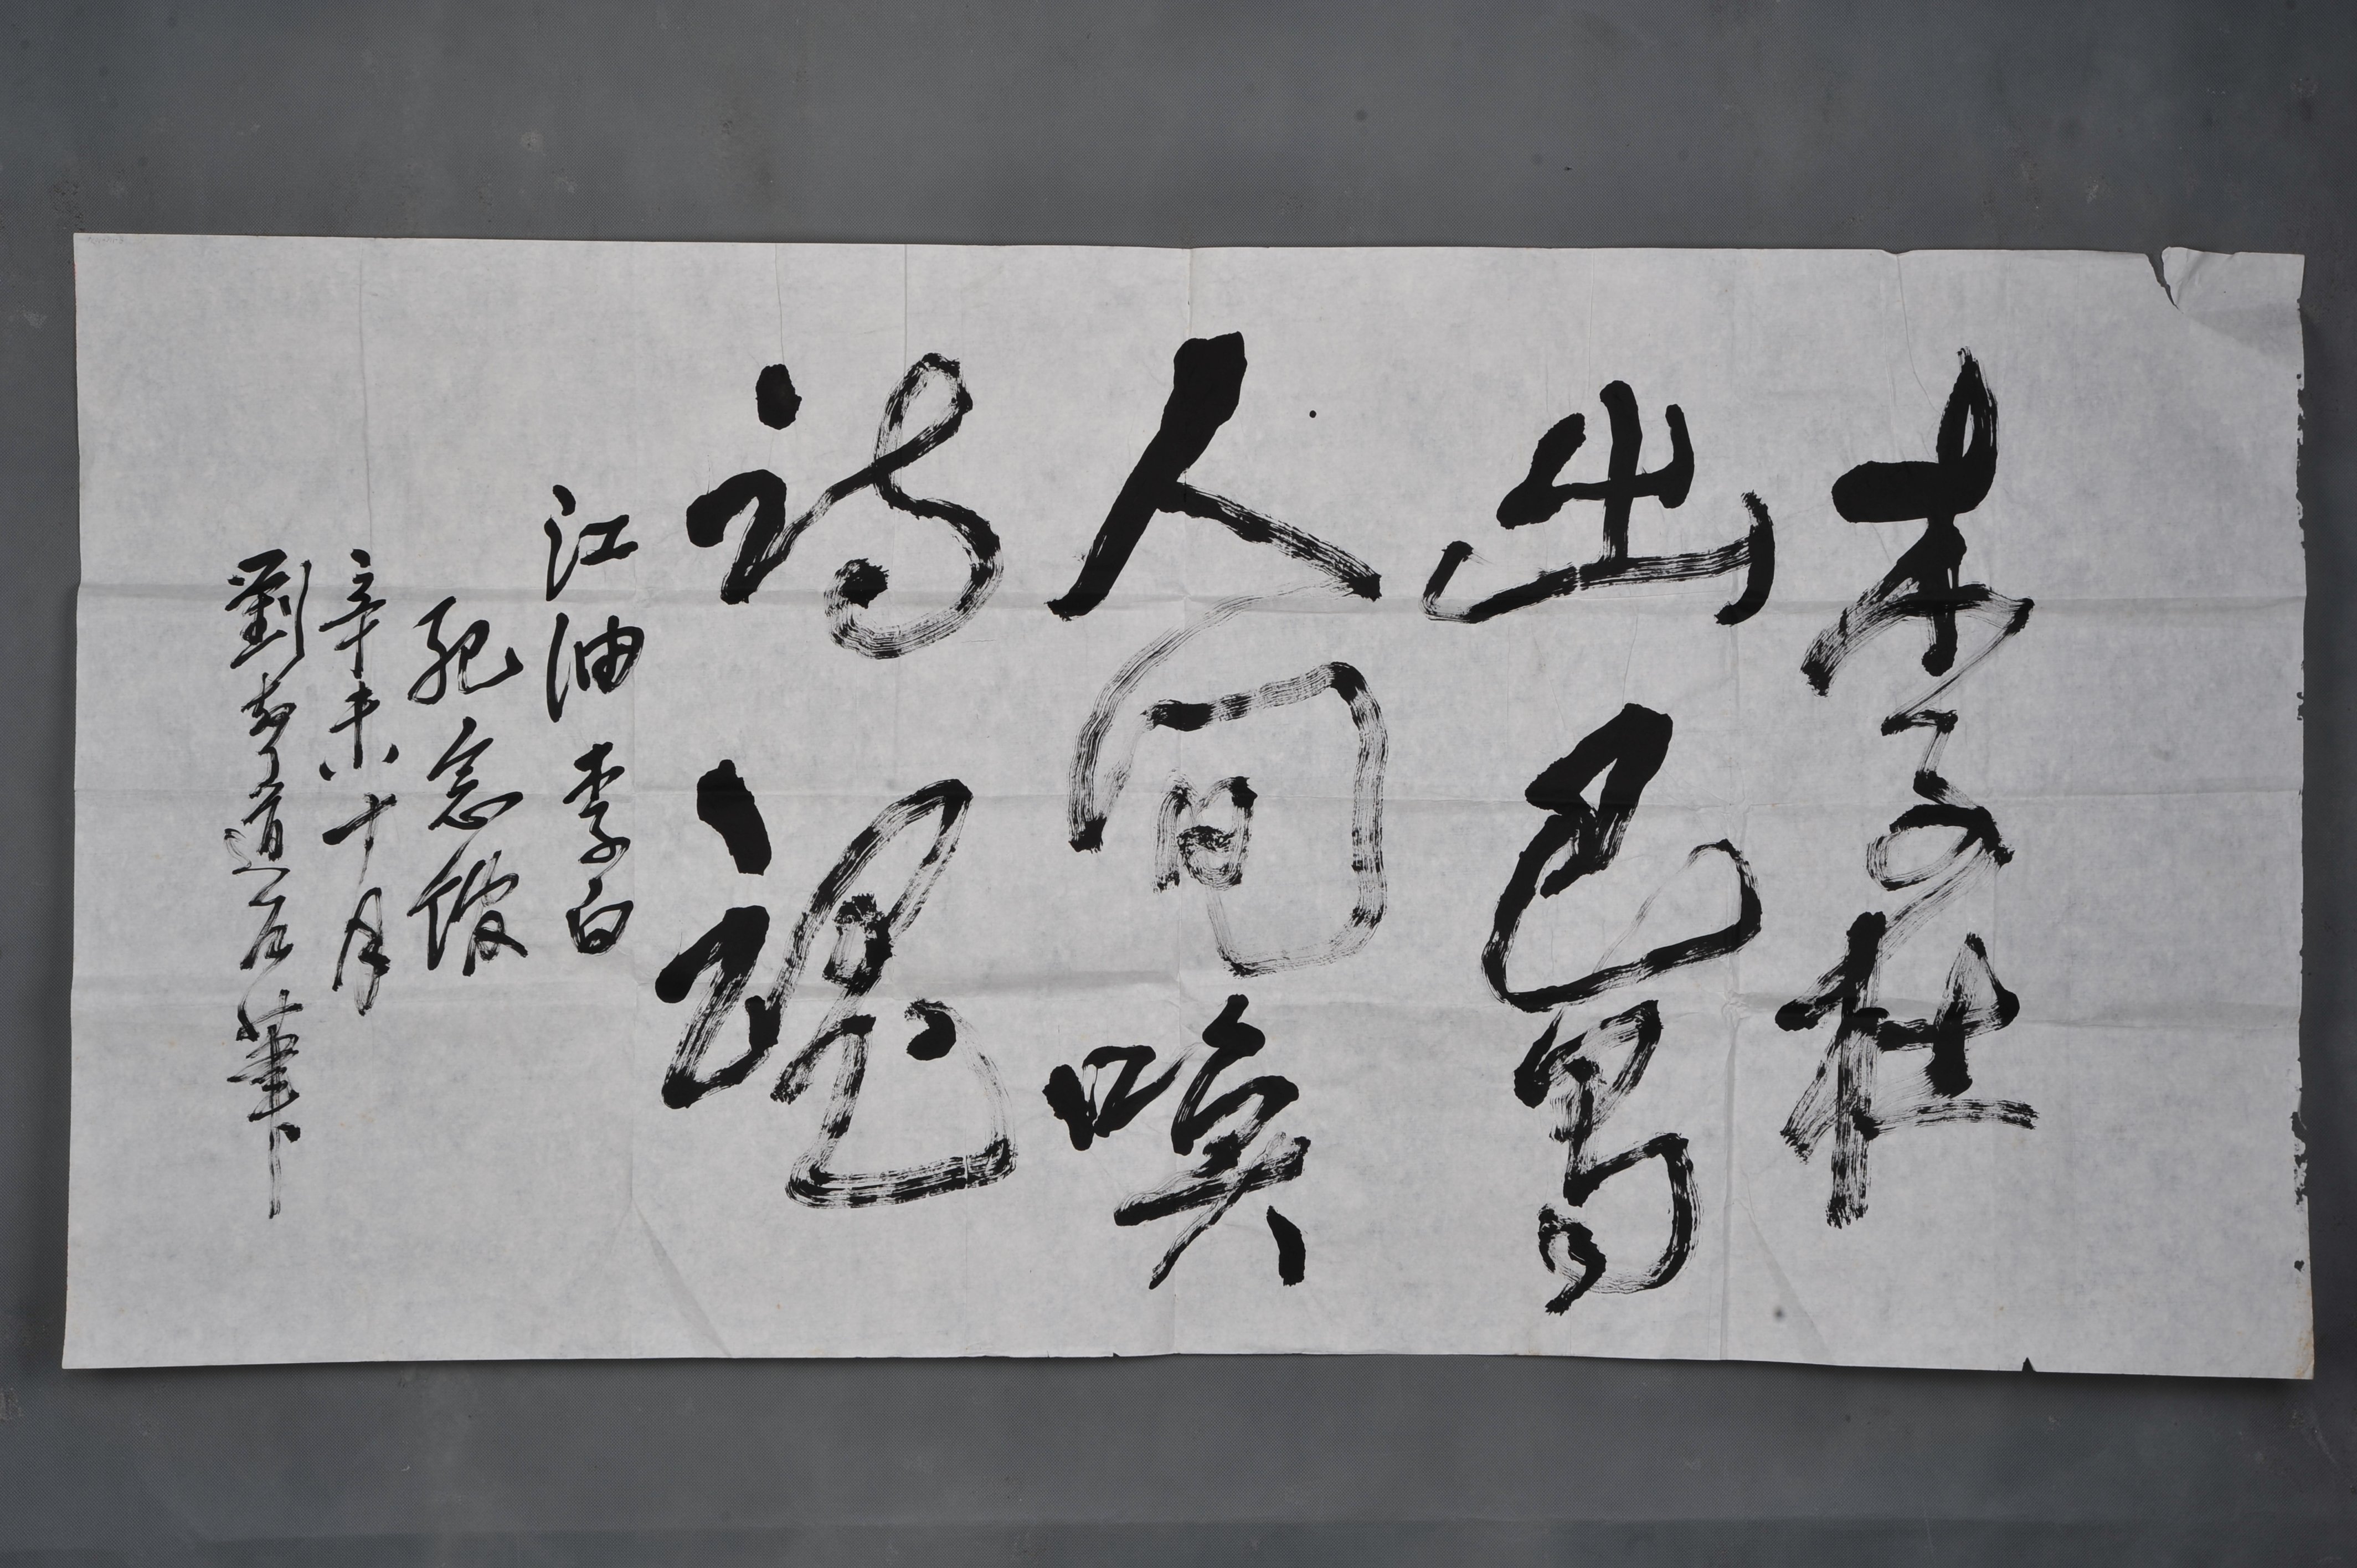 李杜
出巴蜀
人间唤
诗魂
江油李白
纪念馆
辛未十月
劉
道
筆